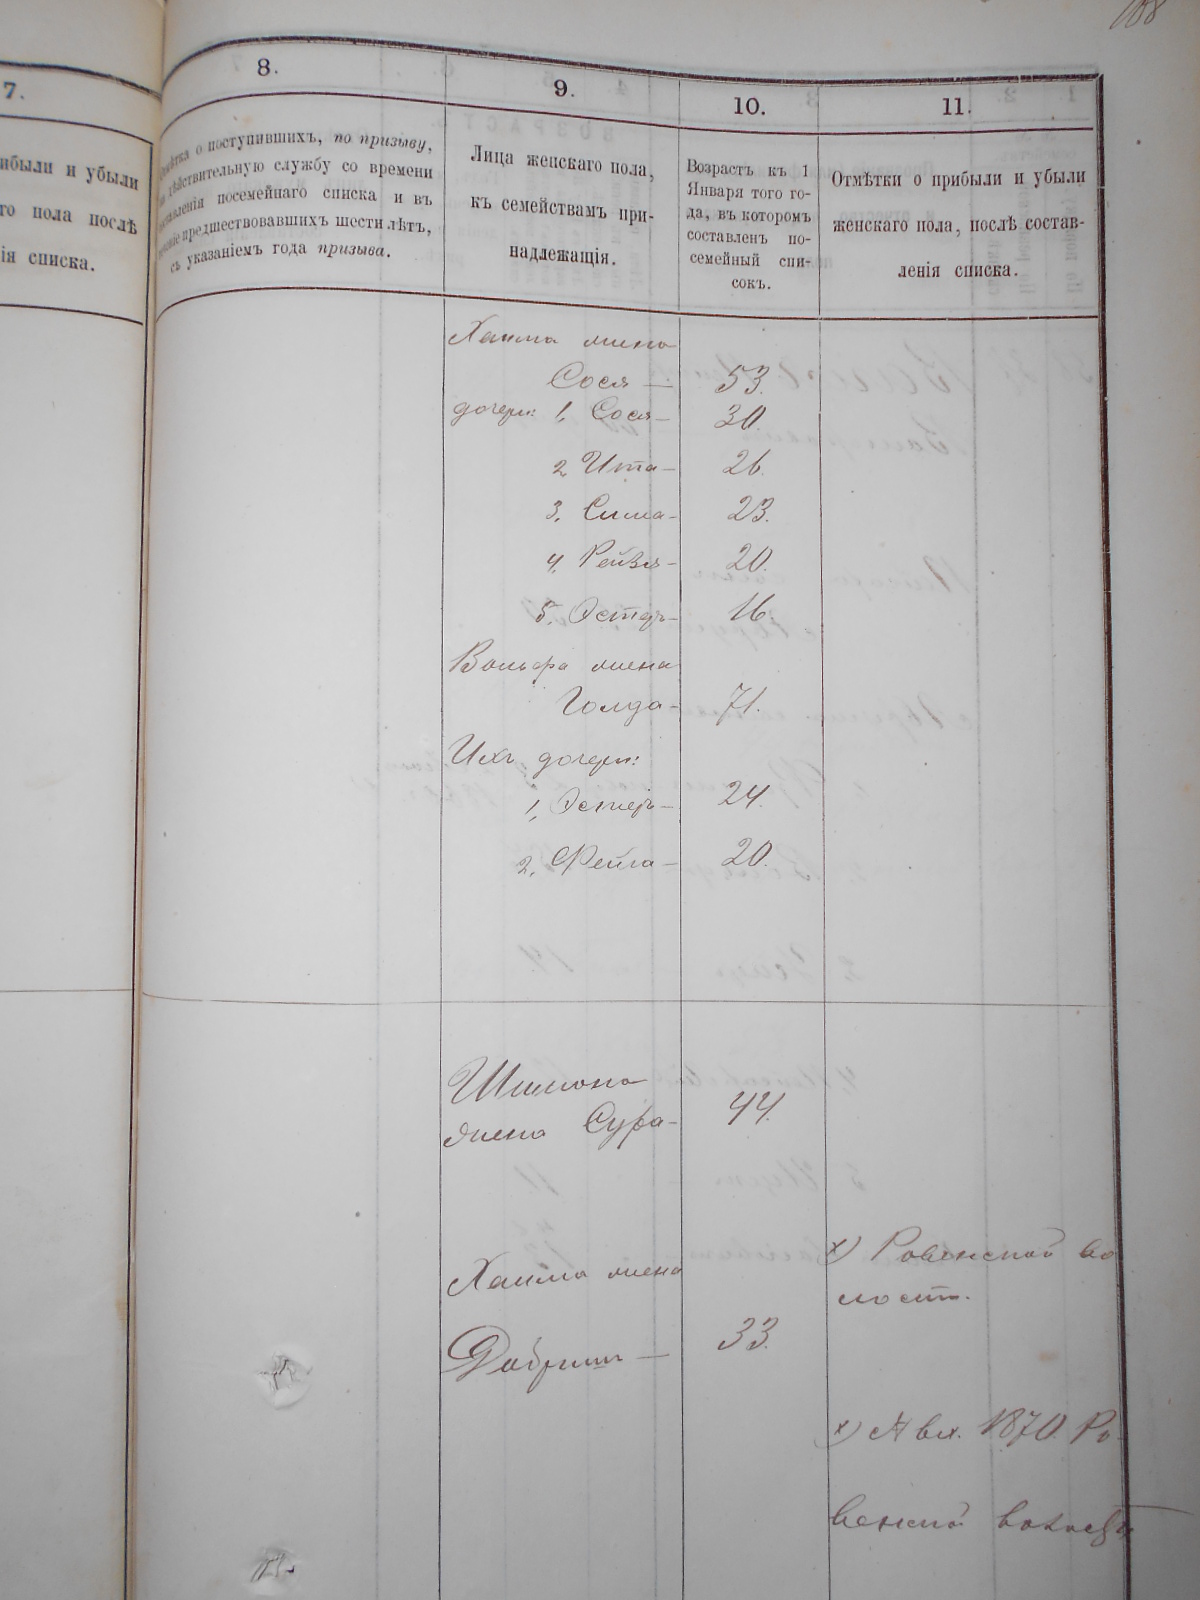 188
7.
ибыли и убыли
го пола послѣ
ія списка.
8.
о поступившихъ, по призыву,
дѣйствительную службу со времени
посемейнаго списка и въ
предшествовавшихъ шести лѣтъ,
съ указаніемъ года призыва.
9.
Лица женскаго пола,
къ семействамъ при-
надлежащія.
10.
Возрастъ къ 1
Января того го-
да, въ которомъ
составленъ по-
семейный спи-
сокъ.
11.
Отмѣтки о прибыли и убыли
женскаго пола, послѣ состав-
ленія списка.
Хаима жена
Сося — 53.
дочери: 1, Сося — 30.
2 Ита — 26.
3, Сима — 23.
4, Рейзя — 20.
5, Эстеръ — 16.
Вольфа жена
Голда — 71.
Ихъ дочери:
1, Эстеръ — 24.
2, Фейга — 20.
Шимона
жена Сура — 44.
Хаима жена
Добришъ — 33.
х) Ровенской во
лости.
х) 1870. Ро-
венской волости